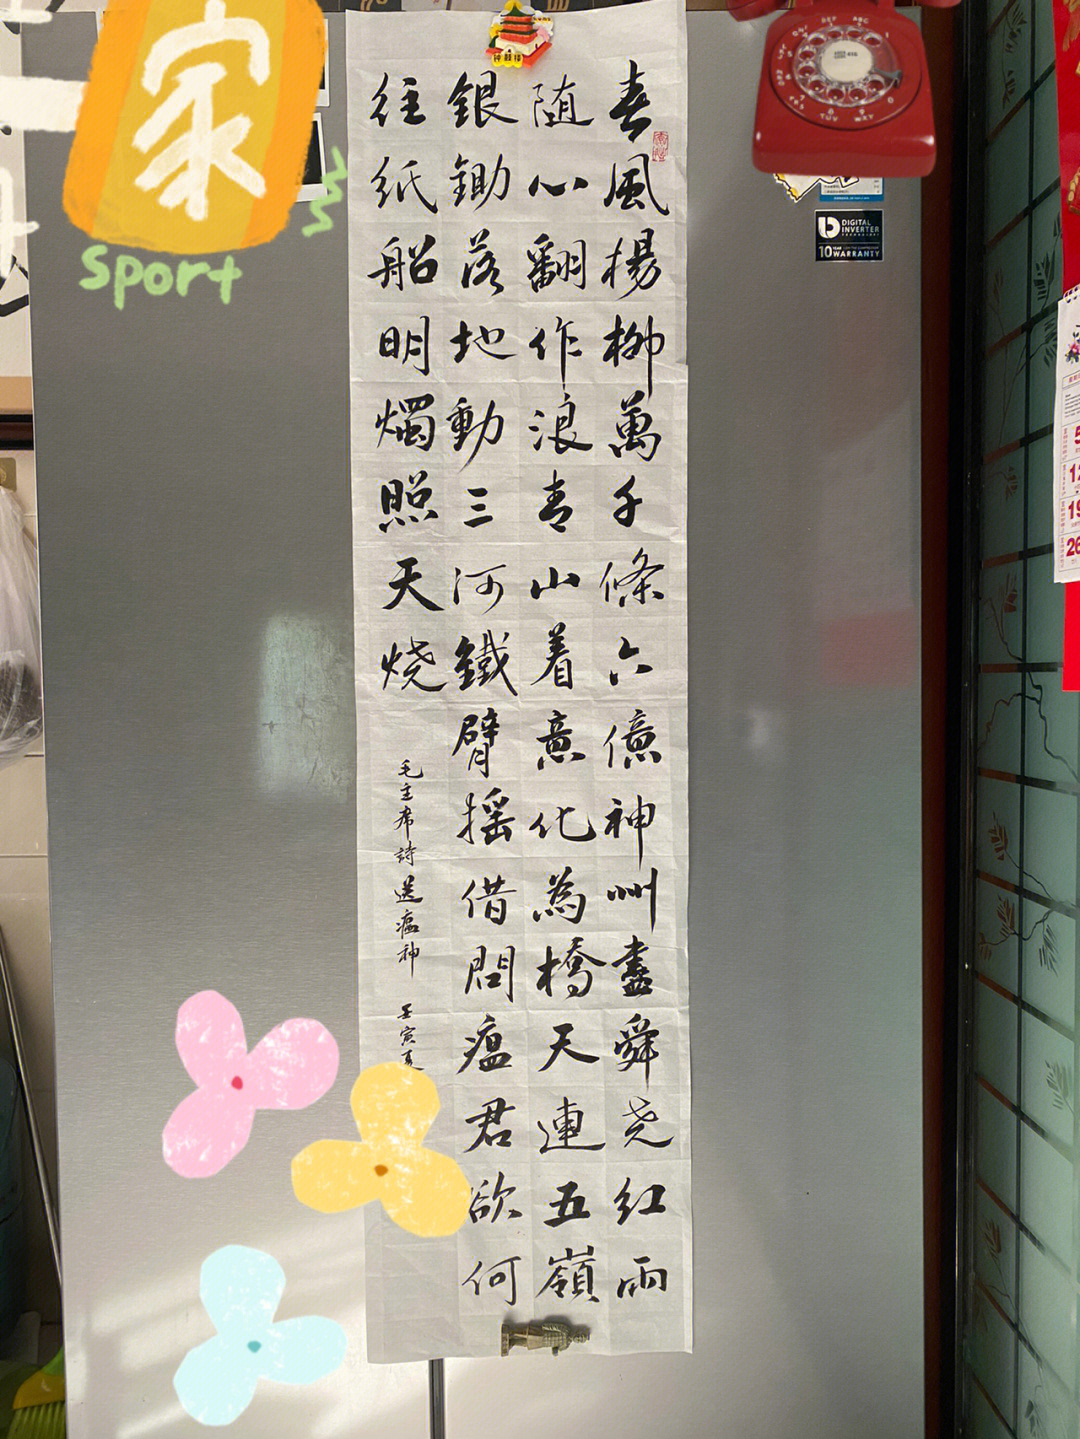 春風楊柳萬千條六億神州盡舜尧红雨
随心翻作浪青山着意化為橋天連五嶺
銀鋤落地動三河鐵臂摇借問瘟君欲何
往紙船明燭照天烧
毛主席詩送瘟神
壬寅夏
家
sport
钟鼓楼
DIGITAL
INVERTER
10 YEAR
WARRANTY
5
12
19
26